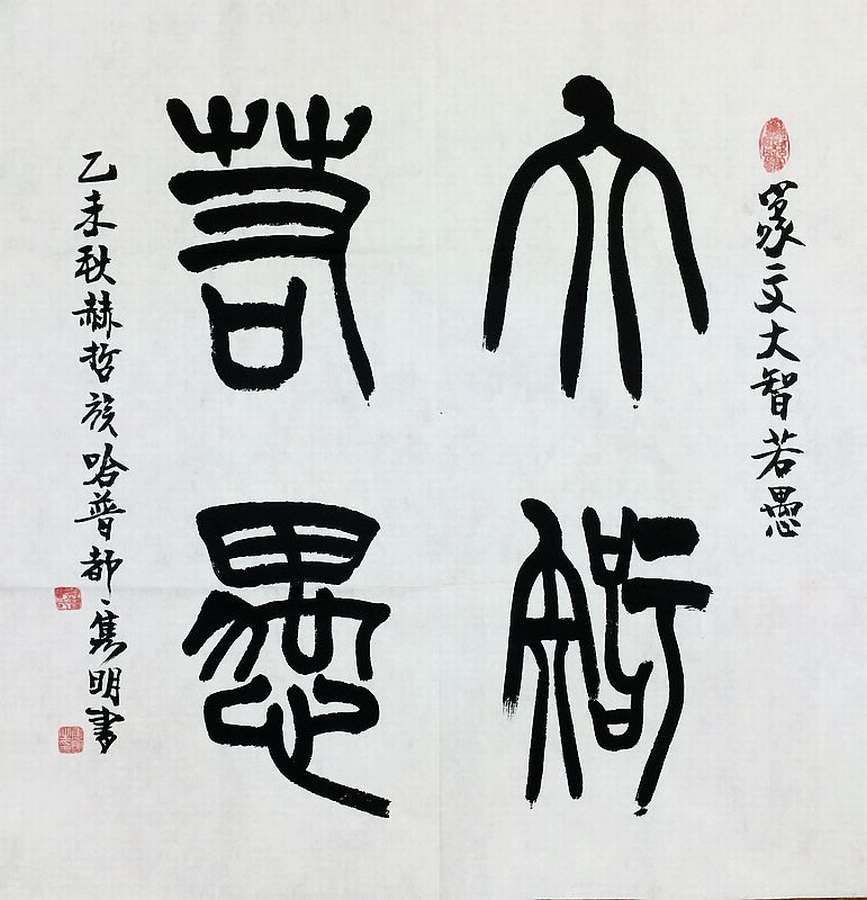 篆文大智若愚
大智
若愚
乙未秋赫哲族哈普都·隽明书